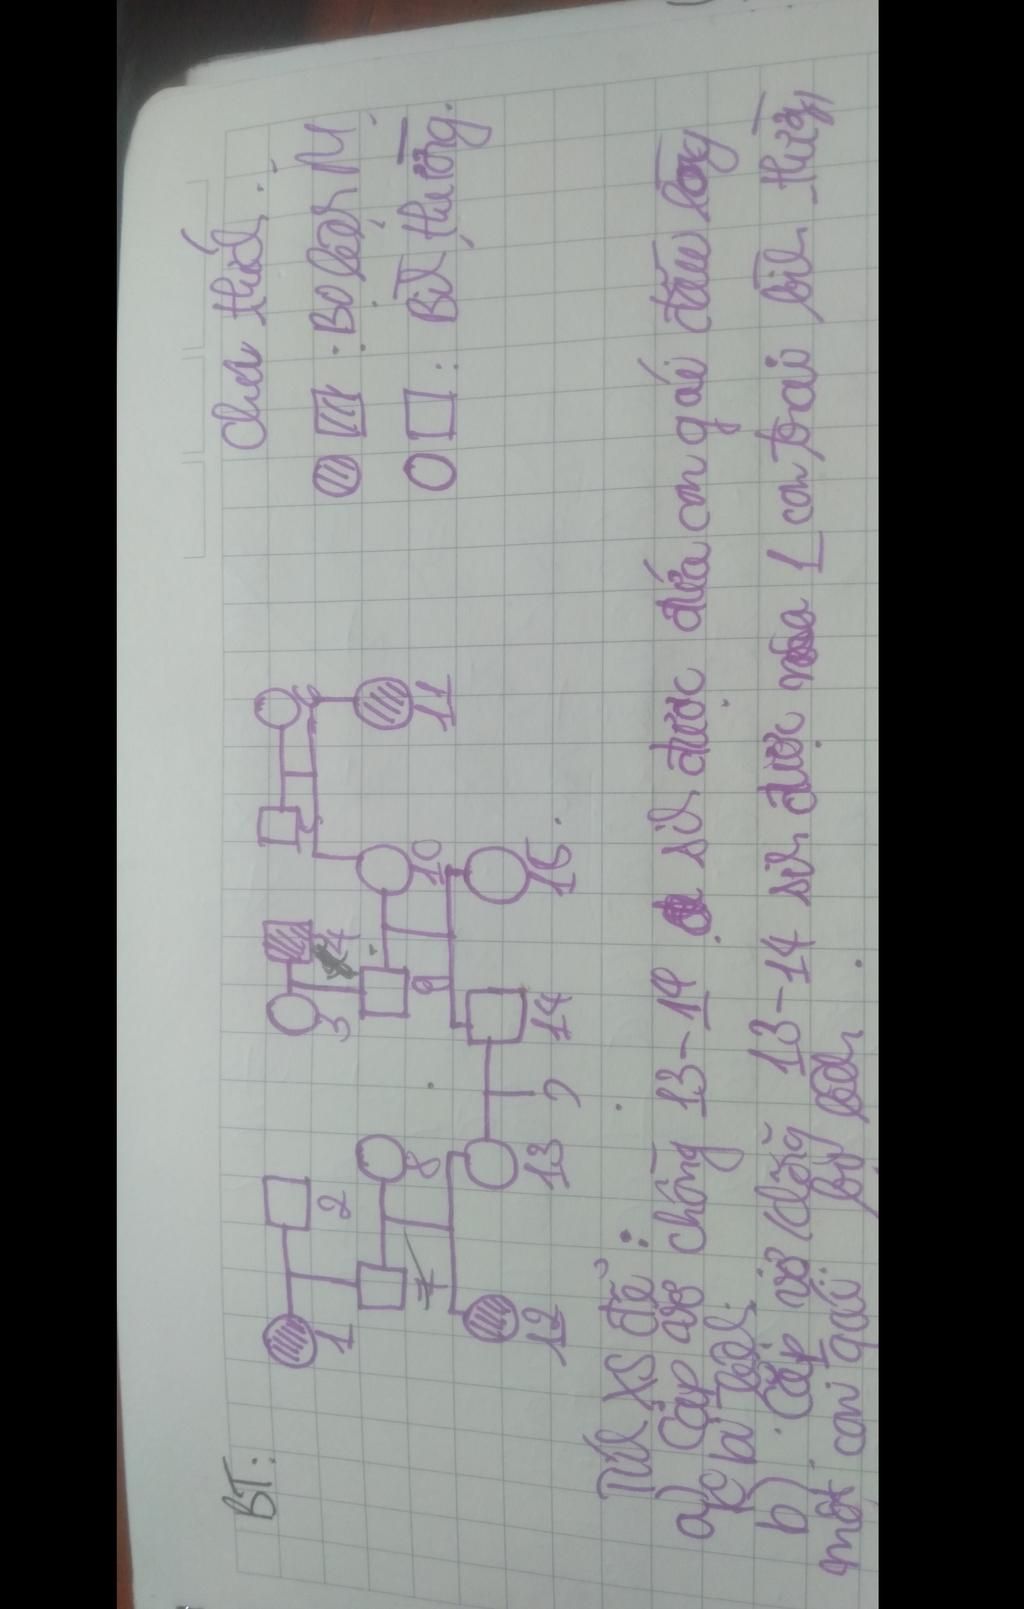 BT:
Chú thích:
: Bị bệnh M
: Bình thường.
1 2 3 4 5 6
7 8 9 10 11
12 13 14 15
?
Tính XS để:
a) Cặp vợ chồng 13-14 sinh được đứa con gái đầu lòng
k bị bệnh.
b) Cặp vợ chồng 13-14 sinh được 1 con trai bình thường
một con gái bị bệnh.